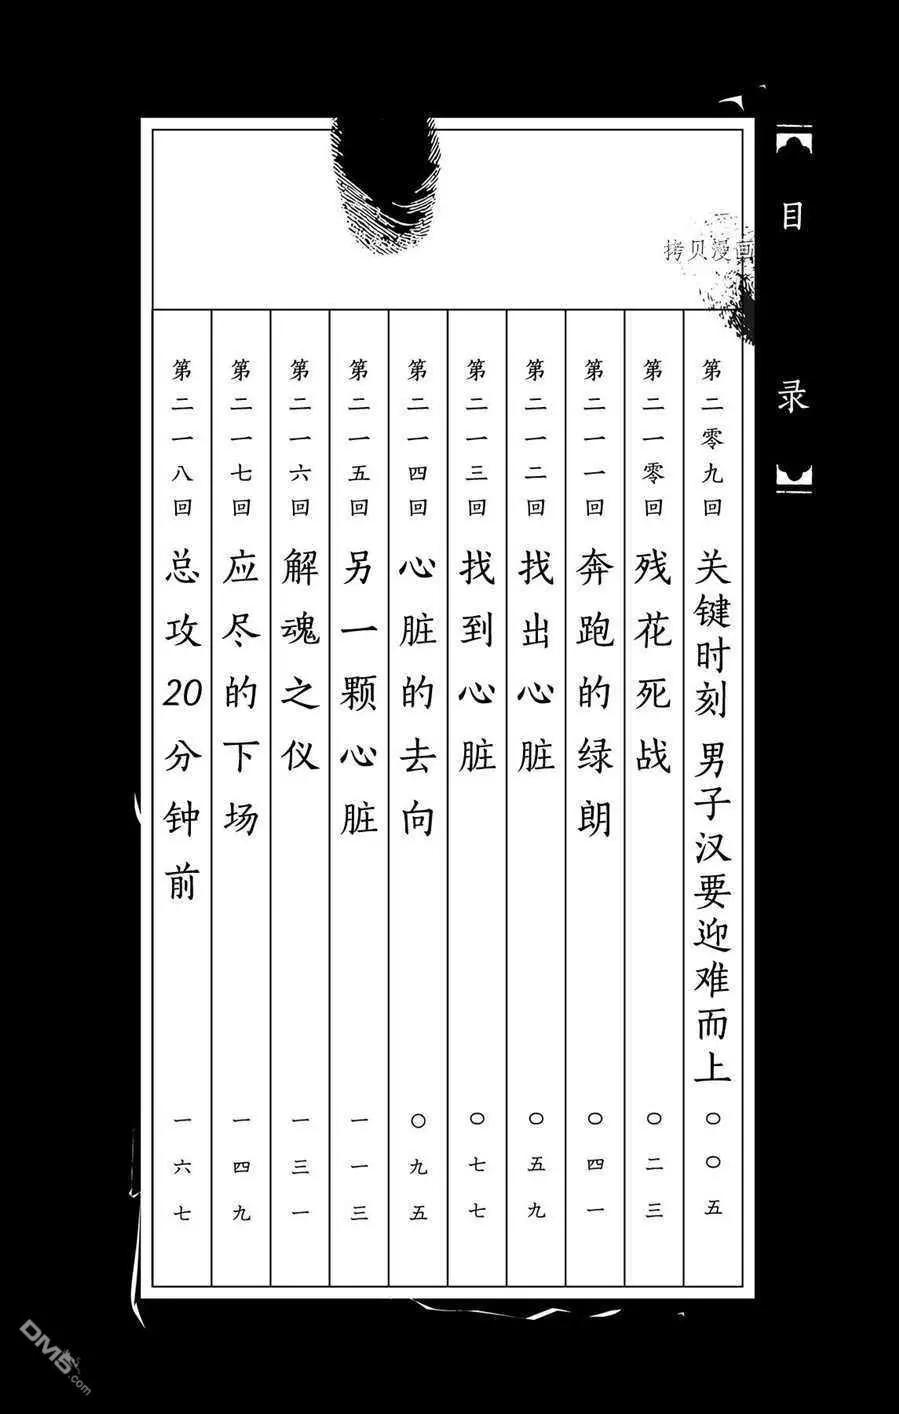 目录
第二零九回 关键时刻 男子汉要迎难而上 〇〇五
第二一零回 残花死战 〇二三
第二一一回 奔跑的绿朗 〇四一
第二一二回 找出心脏 〇五九
第二一三回 找到心脏 〇七七
第二一四回 心脏的去向 〇九五
第二一五回 另一颗心脏 一一三
第二一六回 解魂之仪 一三一
第二一七回 应尽的下场 一四九
第二一八回 总攻20分钟前 一六七
拷贝漫画
DM5.com